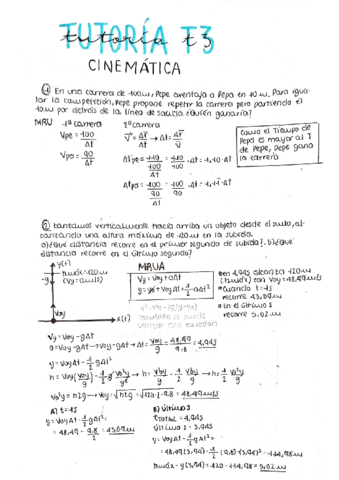 TUTORÍA T3
tutoria t3
CINEMÁTICA
① En una carrera de 100m, Pepe aventaja a Pepa en 10m. Para igua-
lar la competición, Pepe propone repetir la carrera pero partiendo él
10m por detrás de la línea de salida ¿Quién ganaría?
MRU 1ª carrera 2ª carrera
Vpe = 100/Δt V = Δr/Δt → Δt = Δr/V
Vpa = 90/Δt
Δtpe = 110/(100/Δt) = 110/100 · Δt = 1,10 · Δt
Δtpa = 100/(90/Δt) = 100/90 · Δt = 1,11 · Δt
Como el tiempo de
Pepa es mayor al T
de Pepe, Pepe gana
la carrera
② Lanzamos verticalmente hacia arriba un objeto desde el suelo, al-
canzando una altura máxima de 120m en la subida.
a) ¿Qué distancia recorre en el primer segundo de subida?. b) ¿Qué
distancia recorre en el último segundo?
y(t)
hmáx=120m
(Vy=0m/s)
-g
Voy
x(t)
MRUA
Vy = Voy + aΔt
y = yo + VoyΔt + 1/2 aΔt²
utilizar esta ecuación
en 4,94s alcanza 120m
(hmáx) con Voy = 48,49m/s
Cuando t=1s
recorre 43,59m
En el último s
recorre 5,02m
Vy = Voy - gΔt
0 = Voy - gΔt → Voy = gΔt → Δt = Voy/g = 48,49/9.8 = 4,94s
y = VoyΔt - 1/2 gΔt²
h = Voy(Voy/g) - 1/2 g Vo²y/g² → h = Vo²y/g - 1/2 Vo²y/g → h = 1/2 Vo²y/g
Vo²y = h2g → Voy = √h2g = √120·2·9.8 = 48,49m/s
A) t=1s
y = VoyΔt - 1/2 gΔt²
= 48,49 - 9.8/2 = 43,59m
B) Último s
ttotal = 4,94s
último s = 3,94s
y = VoyΔt - 1/2 gΔt²
= 48,49(3,94) - 1/2 (9.8)(3,94)² = 114,98m
hmáx - y(3,94) = 120 - 114,98 = 5,02m